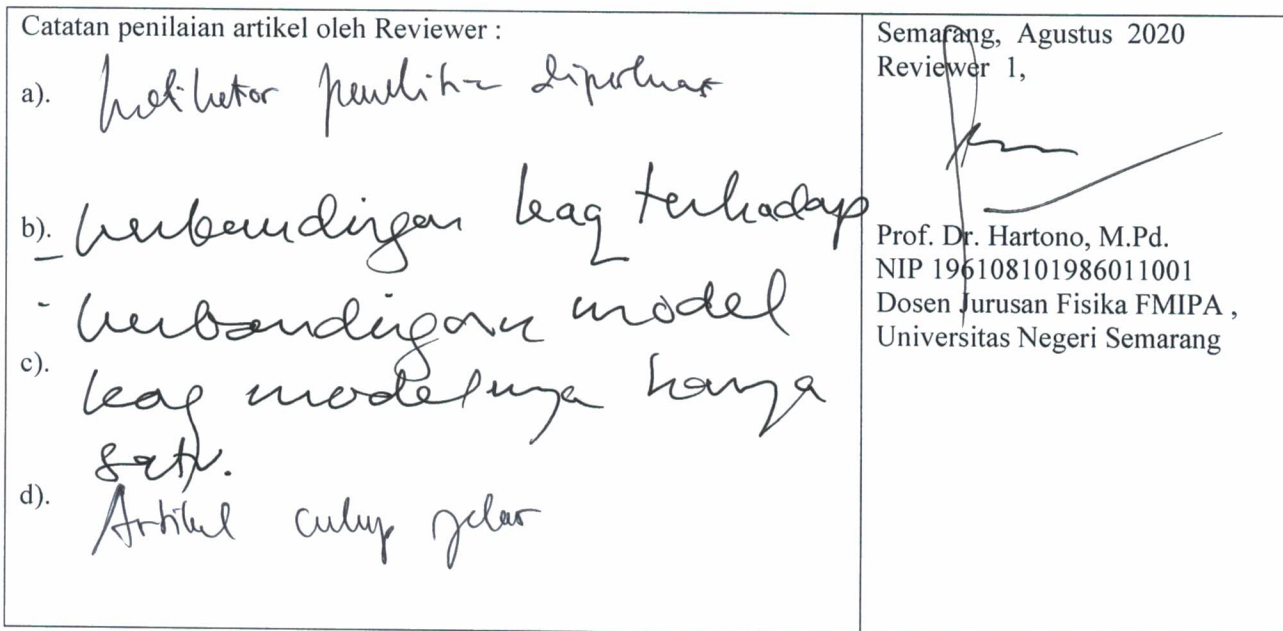 Catatan penilaian artikel oleh Reviewer :
a). penelitian diperluas
b). - perbandingan kag terhadap
- perbandingan model
c). kag modelnya hanya
satu.
d). Artikel cukup jelas
Semarang, Agustus 2020
Reviewer 1,
Prof. Dr. Hartono, M.Pd.
NIP 196108101986011001
Dosen Jurusan Fisika FMIPA ,
Universitas Negeri Semarang